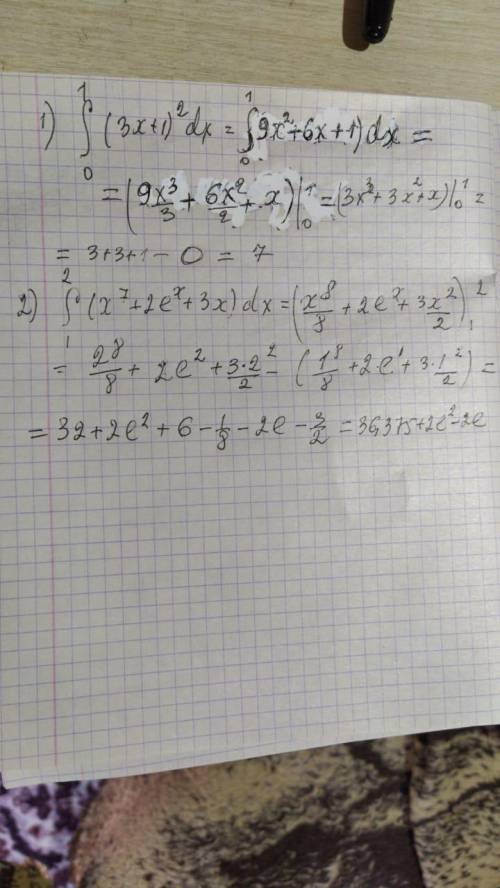 1) ∫₀¹ (3x+1)² dx = ∫₀¹ 9x²+6x+1) dx =
= (9x³/3 + 6x²/2 + x)|₀¹ = (3x³+3x²+x)|₀¹ =
= 3+3+1 − 0 = 7
2) ∫₁² (x⁷+2eˣ+3x) dx = (x⁸/8 + 2eˣ + 3x²/2)₁²
= 2⁸/8 + 2e² + 3·2²/2 − (1⁸/8 + 2e¹ + 3·1²/2) =
= 32+2e²+6 − 1/8 − 2e − 3/2 = 36,375+2e²−2e